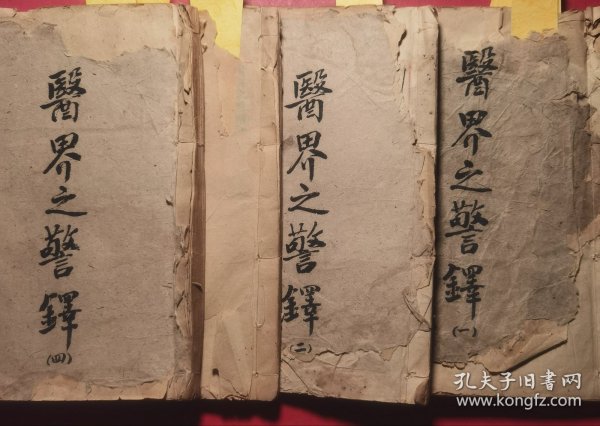 醫界之警鐸
(一)
醫界之警鐸
(二)
醫界之警鐸
(四)
孔夫子旧書网
www.kongfz.com